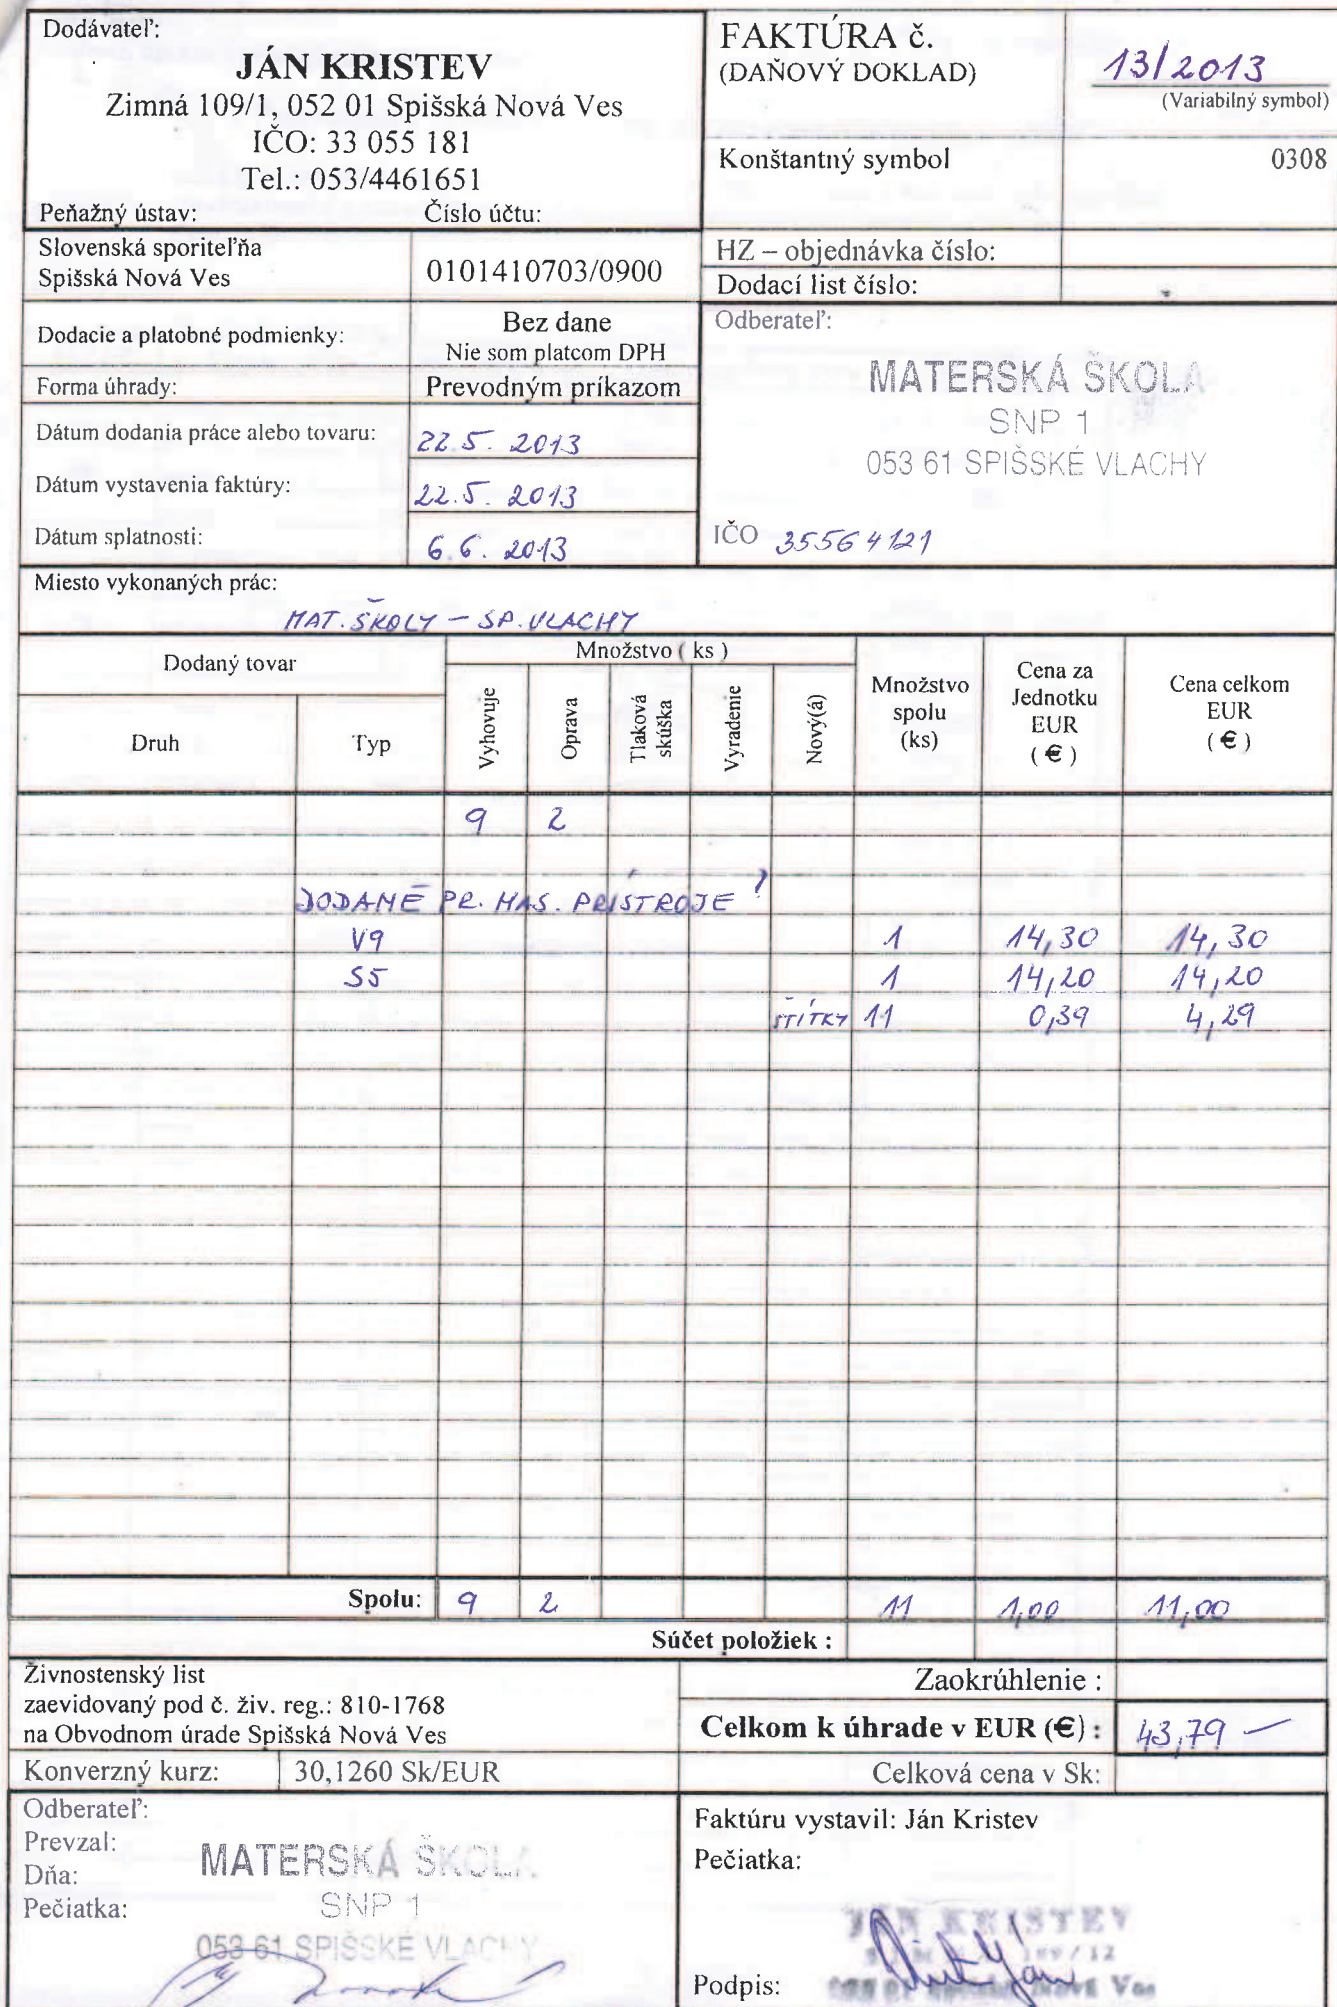 Dodávateľ:
JÁN KRISTEV
Zimná 109/1, 052 01 Spišská Nová Ves
IČO: 33 055 181
Tel.: 053/4461651
Peňažný ústav: Číslo účtu:
Slovenská sporiteľňa
Spišská Nová Ves
0101410703/0900
FAKTÚRA č.
(DAŇOVÝ DOKLAD)
13/2013
(Variabilný symbol)
Konštantný symbol 0308
HZ – objednávka číslo:
Dodací list číslo:
Dodacie a platobné podmienky: Bez dane
Nie som platcom DPH
Forma úhrady: Prevodným príkazom
Dátum dodania práce alebo tovaru: 22.5. 2013
Dátum vystavenia faktúry: 22.5. 2013
Dátum splatnosti: 6.6. 2013
Odberateľ:
MATERSKÁ ŠKOLA
SNP 1
053 61 SPIŠSKÉ VLACHY
IČO 35564121
Miesto vykonaných prác:
MAT. ŠKOLY – SP. VLACHY
Dodaný tovar
Druh Typ
Množstvo ( ks )
Vyhovuje Oprava Tlaková skúška Vyradenie Nový(á)
Množstvo spolu (ks)
Cena za Jednotku EUR ( € )
Cena celkom EUR ( € )
9 2
DODANÉ PR. HAS. PRÍSTROJE
V9 1 14,30 14,30
S5 1 14,20 14,20
ŠTÍTKY 11 0,39 4,29
Spolu: 9 2 11 1,00 11,00
Súčet položiek :
Živnostenský list
zaevidovaný pod č. živ. reg.: 810-1768
na Obvodnom úrade Spišská Nová Ves
Zaokrúhlenie :
Celkom k úhrade v EUR (€) : 43,79 —
Konverzný kurz: 30,1260 Sk/EUR
Celková cena v Sk:
Odberateľ:
Prevzal:
Dňa:
Pečiatka:
MATERSKÁ ŠKOLA
SNP 1
053 61 SPIŠSKÉ VLACHY
Faktúru vystavil: Ján Kristev
Pečiatka:
JÁN KRISTEV
Podpis: